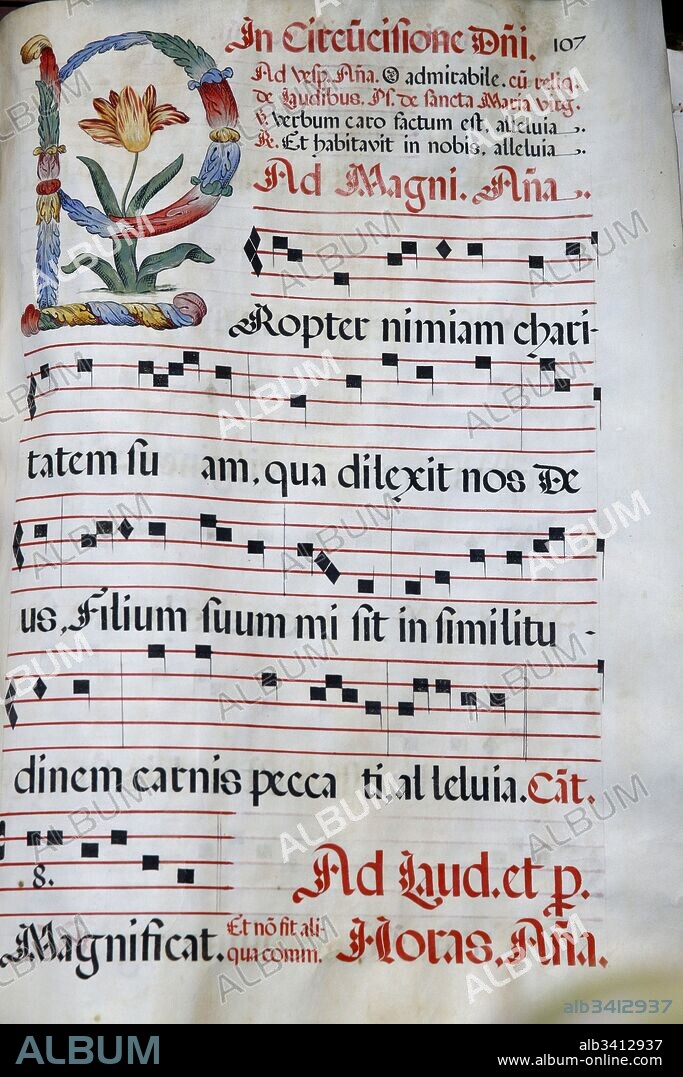 In Circūcisione Dñi. 107
Ad Vesp. Aña. O admirabile. cū reliq.
de Laudibus. Ps. de sancta Maria virg.
V. Verbum caro factum est, alleluia.
R. Et habitavit in nobis, alleluia.
Ad Magni. Aña.
PRopter nimiam chari-
tatem su am, qua dilexit nos De
us, Filium suum mi sit in similitu -
dinem carnis pecca ti, al leluia. Cāt.
8.
Ad Laud. et p.
Magnificat. Et nō fit ali- Horas, Aña.
qua comm.
ALBUM
alb3412937
ALBUM
alb3412937
album-online.com